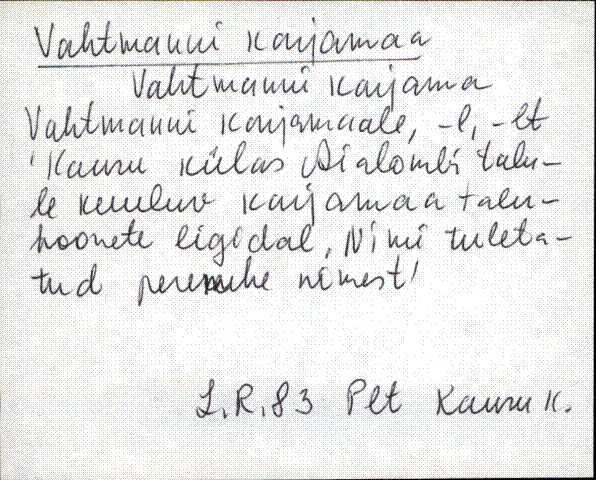 Vahtmanni karjamaa
Vahtmanni karjama
Vahtmanni karjamaale, -l, -lt
'Kauru külas Aialombi talu-
le kuuluv karjamaa talu-
hoonete ligidal, Nimi tuleta-
tud peremehe nimest'
L.R.83 Plt Kauru k.